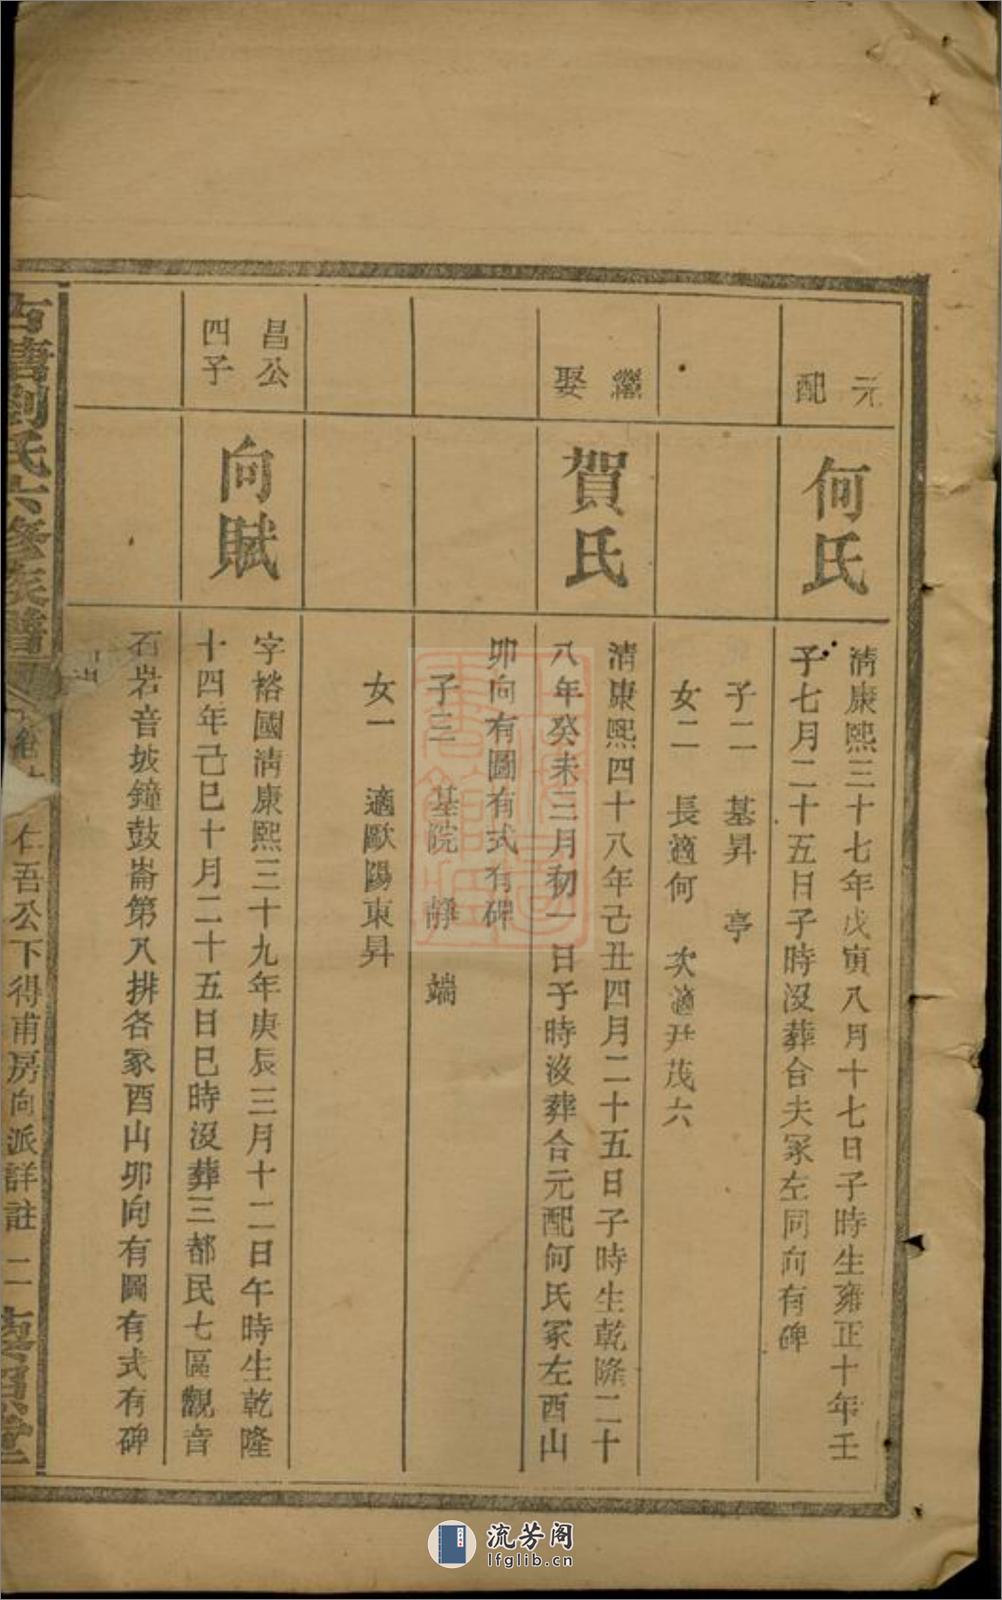 元配
何氏
清康熙三十七年戊寅八月十七日子時生雍正十年壬
子七月二十五日子時沒葬合夫冢左同向有碑
子二 基昇 亭
女二 長適何 次適尹茂六
繼娶
賀氏
清康熙四十八年己丑四月二十五日子時生乾隆二十
八年癸未三月初一日子時沒葬合元配何氏冢左酉山
卯向有圖有式有碑
子三 基院 靜 端
女一 適歐陽東昇
昌公
四子
向賦
字裕國清康熙三十九年庚辰三月十二日午時生乾隆
十四年己巳十月二十五日巳時沒葬三都民七區觀音
石岩音坡鐘鼓崙第八排各冢酉山卯向有圖有式有碑
古塘劉氏六修族譜
仁吾公下得甫房向派詳註 二
流芳阁
lfglib.cn